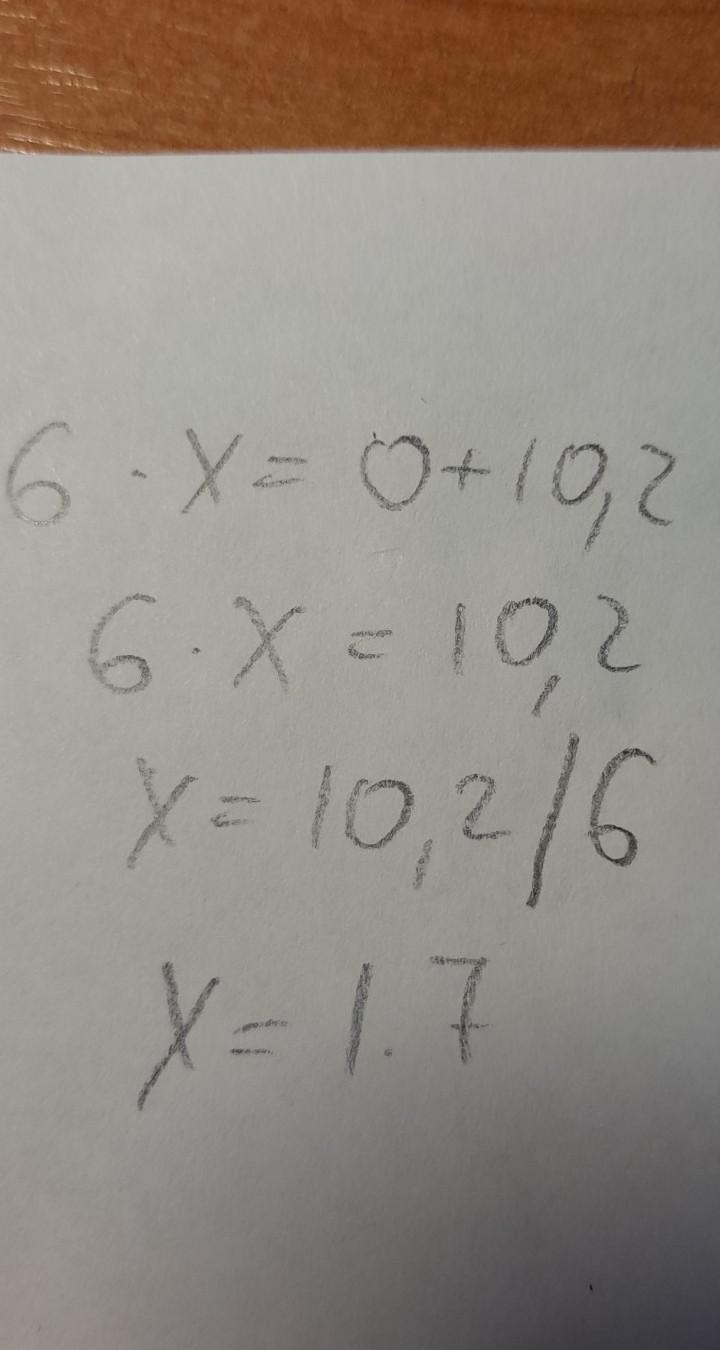 6 · x = 0 + 10,2
6 · x = 10,2
x = 10,2 / 6
x = 1.7